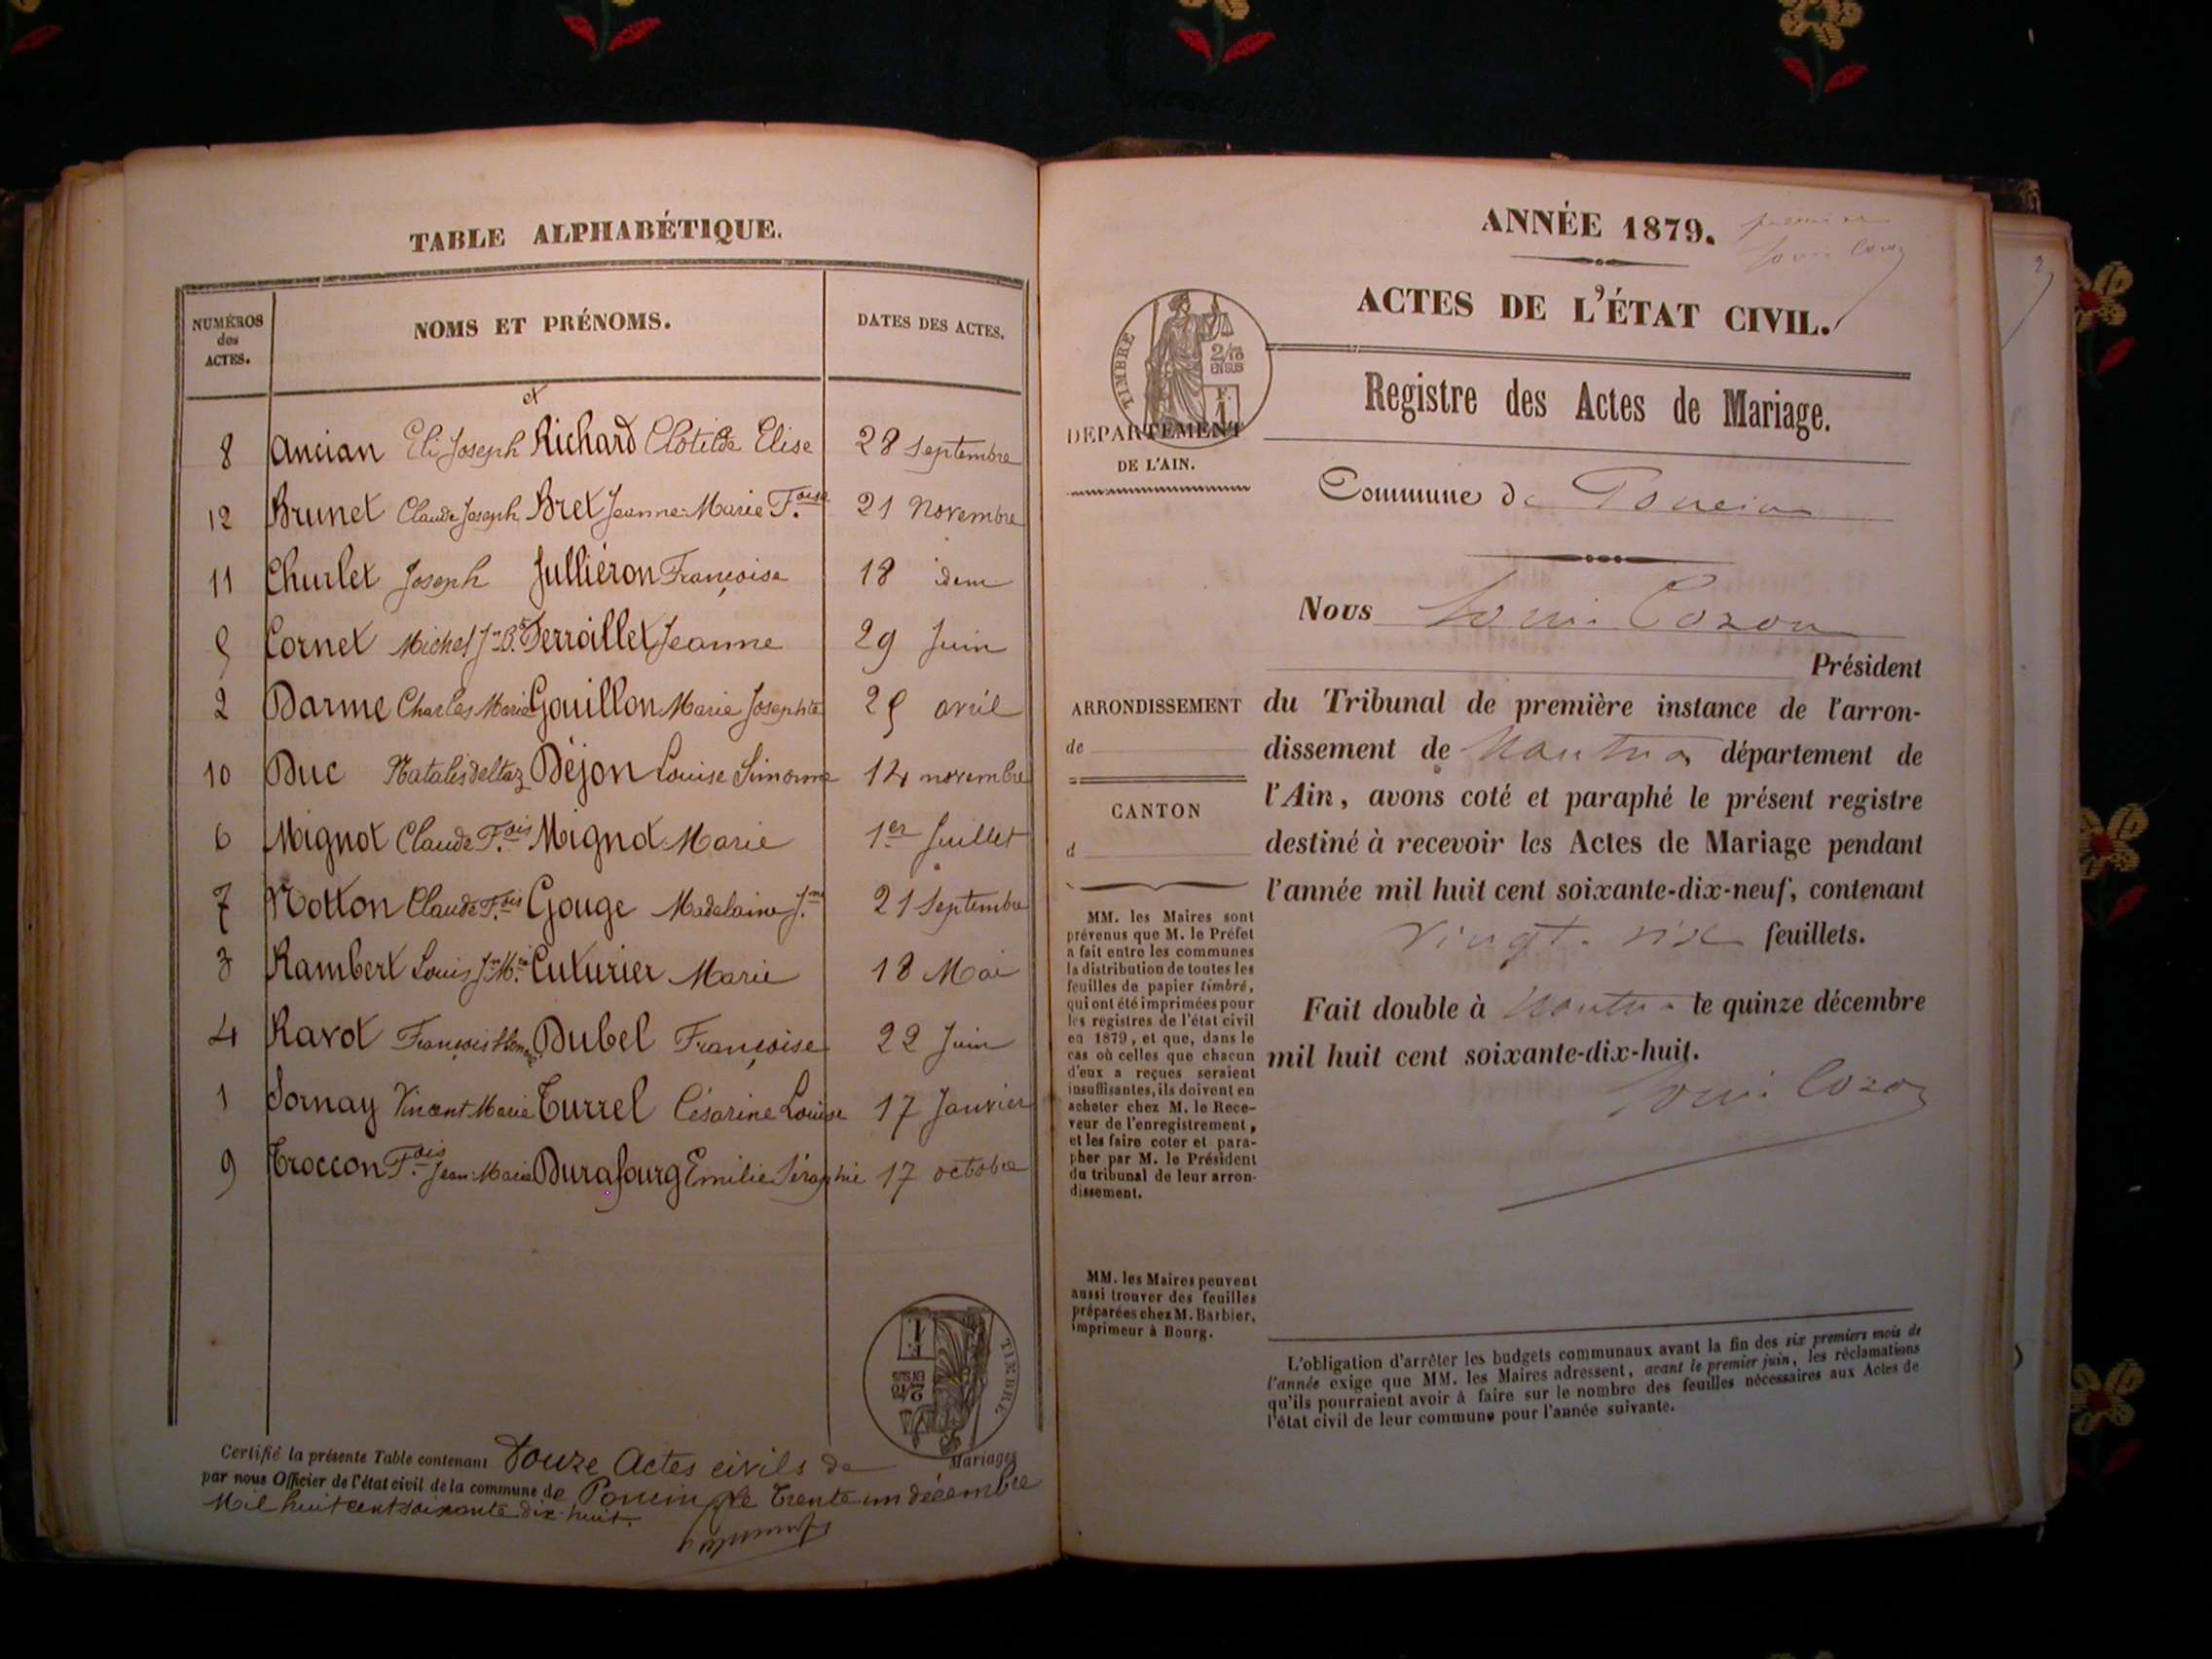 TABLE ALPHABÉTIQUE.
NUMÉROS
des
ACTES.
NOMS ET PRÉNOMS.
DATES DES ACTES.
et
8 Ancian Eli Joseph Richard Clotilde Elise 28 septembre
12 Brunet Claude Joseph Bret Jeanne-Marie F.oise 21 Novembre
11 Churlet Joseph Jullièron Françoise 18 idem
5 Cornet Michel Jn B.te Jeanne 29 Juin
2 Darme Charles Marie Gouillon Marie Josephte 25 avril
10 Duc Déjon Louise Simonne 14 novembre
6 Mignot Claude F.ois Mignot Marie 1er Juillet
7 Notton Claude F.ois Gouge Madelaine J.ne 21 Septembre
3 Rambert Louis Jn M.ie Cuturier Marie 18 Mai
4 Ravot François Dubel Françoise 22 Juin
1 Sornay Vincent Marie Turrel Césarine Louise 17 Janvier
9 Troccon F.ois Jean-Marie Durafourg Emilie Séraphie 17 octobre
TIMBRE
2/10
EN SUS
F.
1
Certifié la présente Table contenant Douze Actes civils de Mariages
par nous Officier de l'état civil de la commune de Poncin, le Trente un décembre
Mil huit cent soixante dix-huit.
ANNÉE 1879.
premier
Louis Cozon
2
ACTES DE L'ÉTAT CIVIL.
TIMBRE
2/10
EN SUS
F.
1
Registre des Actes de Mariage.
DEPARTEMENT
DE L'AIN.
Commune de Poncin
Nous Louis Cozon
Président
ARRONDISSEMENT
de
CANTON
d
du Tribunal de première instance de l'arron-
dissement de Nantua département de
l'Ain, avons coté et paraphé le présent registre
destiné à recevoir les Actes de Mariage pendant
l'année mil huit cent soixante-dix-neuf, contenant
vingt-six feuillets.
Fait double à Nantua le quinze décembre
mil huit cent soixante-dix-huit.
Louis Cozon
MM. les Maires sont
prévenus que M. le Préfet
a fait entre les communes
la distribution de toutes les
feuilles de papier timbré,
qui ont été imprimées pour
les registres de l'état civil
en 1879, et que, dans le
cas où celles que chacun
d'eux a reçues seraient
insuffisantes, ils doivent en
acheter chez M. le Rece-
veur de l'enregistrement,
et les faire coter et para-
pher par M. le Président
du tribunal de leur arron-
dissement.
MM. les Maires peuvent
aussi trouver des feuilles
préparées chez M. Barbier,
imprimeur à Bourg.
L'obligation d'arrêter les budgets communaux avant la fin des six premiers mois de
l'année exige que MM. les Maires adressent, avant le premier juin, les réclamations
qu'ils pourraient avoir à faire sur le nombre des feuilles nécessaires aux Actes de
l'état civil de leur commune pour l'année suivante.